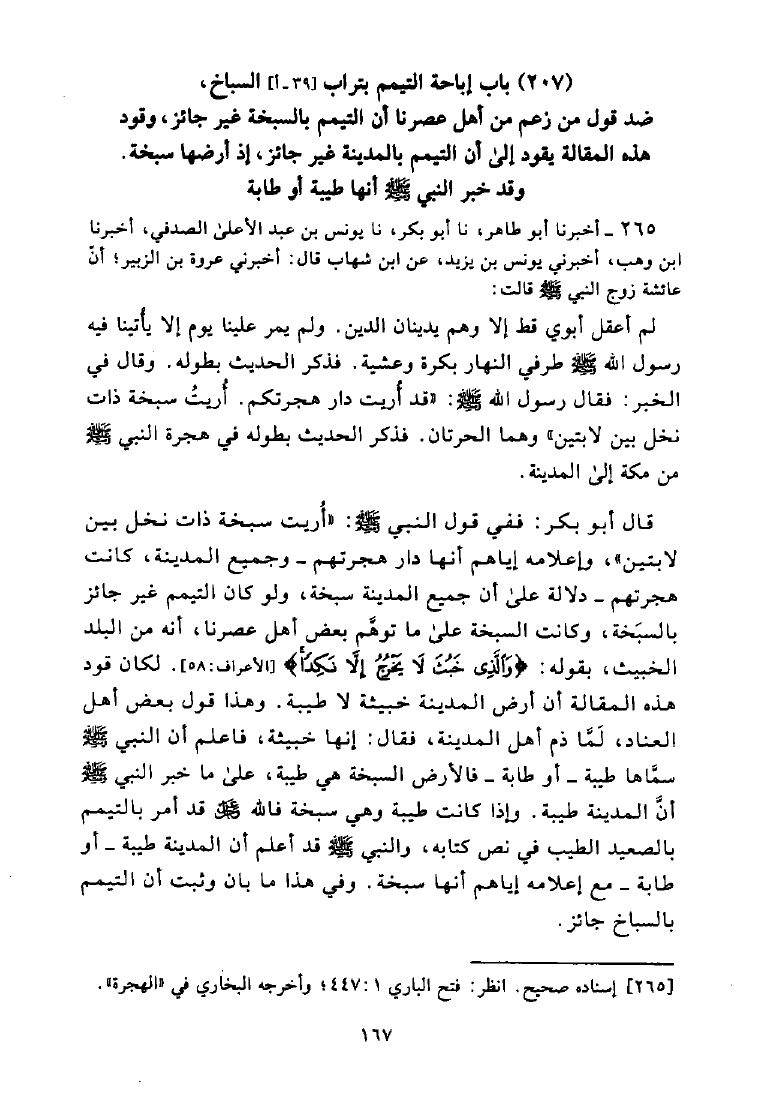 (٢٠٧) باب إباحة التيمم بتراب [٣٩ - أ] السباخ،
ضد قول من زعم من أهل عصرنا أن التيمم بالسبخة غير جائز، وقود
هذه المقالة يقود إلىٰ أن التيمم بالمدينة غير جائز، إذ أرضها سبخة.
وقد خبر النبي ﷺ أنها طيبة أو طابة
٢٦٥ - أخبرنا أبو طاهر، نا أبو بكر، نا يونس بن عبد الأعلىٰ الصدفي، أخبرنا
ابن وهب، أخبرني يونس بن يزيد، عن ابن شهاب قال: أخبرني عروة بن الزبير؛ أنّ
عائشة زوج النبي ﷺ قالت:
لم أعقل أبوي قط إلا وهم يدينان الدين. ولم يمر علينا يوم إلا يأُتينا فيه
رسول الله ﷺ طرفي النهار بكرة وعشية. فذكر الحديث بطوله. وقال في
الخبر: فقال رسول الله ﷺ: «قد أُريت دار هجرتكم. أُريتُ سبخة ذات
نخل بين لابتين» وهما الحرتان. فذكر الحديث بطوله في هجرة النبي ﷺ
من مكة إلىٰ المدينة.
قال أبو بكر: ففي قول النبي ﷺ: «أُريت سبخة ذات نخل بين
لابتين»، وإعلامه إياهم أنها دار هجرتهم - وجميع المدينة، كانت
هجرتهم - دلالة علىٰ أن جميع المدينة سبخة، ولو كان التيمم غير جائز
بالسبَخة، وكانت السبخة علىٰ ما توهَّم بعض أهل عصرنا، أنه من البلد
الخبيث، بقوله: ﴿وَٱلَّذِى خَبُثَ لَا يَخْرُجُ إِلَّا نَكِدًا﴾ [الأعراف: ٥٨]. لكان قود
هذه المقالة أن أرض المدينة خبيثة لا طيبة. وهذا قول بعض أهل
العناد، لَمَّا ذم أهل المدينة، فقال: إنها خبيثة، فاعلم أن النبي ﷺ
سمَّاها طيبة - أو طابة - فالأرض السبخة هي طيبة، علىٰ ما خبر النبي ﷺ
أنَّ المدينة طيبة. وإذا كانت طيبة وهي سبخة فالله ﷻ قد أمر بالتيمم
بالصعيد الطيب في نص كتابه، والنبي ﷺ قد أعلم أن المدينة طيبة - أو
طابة - مع إعلامه إياهم أنها سبخة. وفي هذا ما بان وثبت أن التيمم
بالسباخ جائز.
[٢٦٥] إسناده صحيح. انظر: فتح الباري ١: ٤٤٧؛ وأخرجه البخاري في «الهجرة».
١٦٧